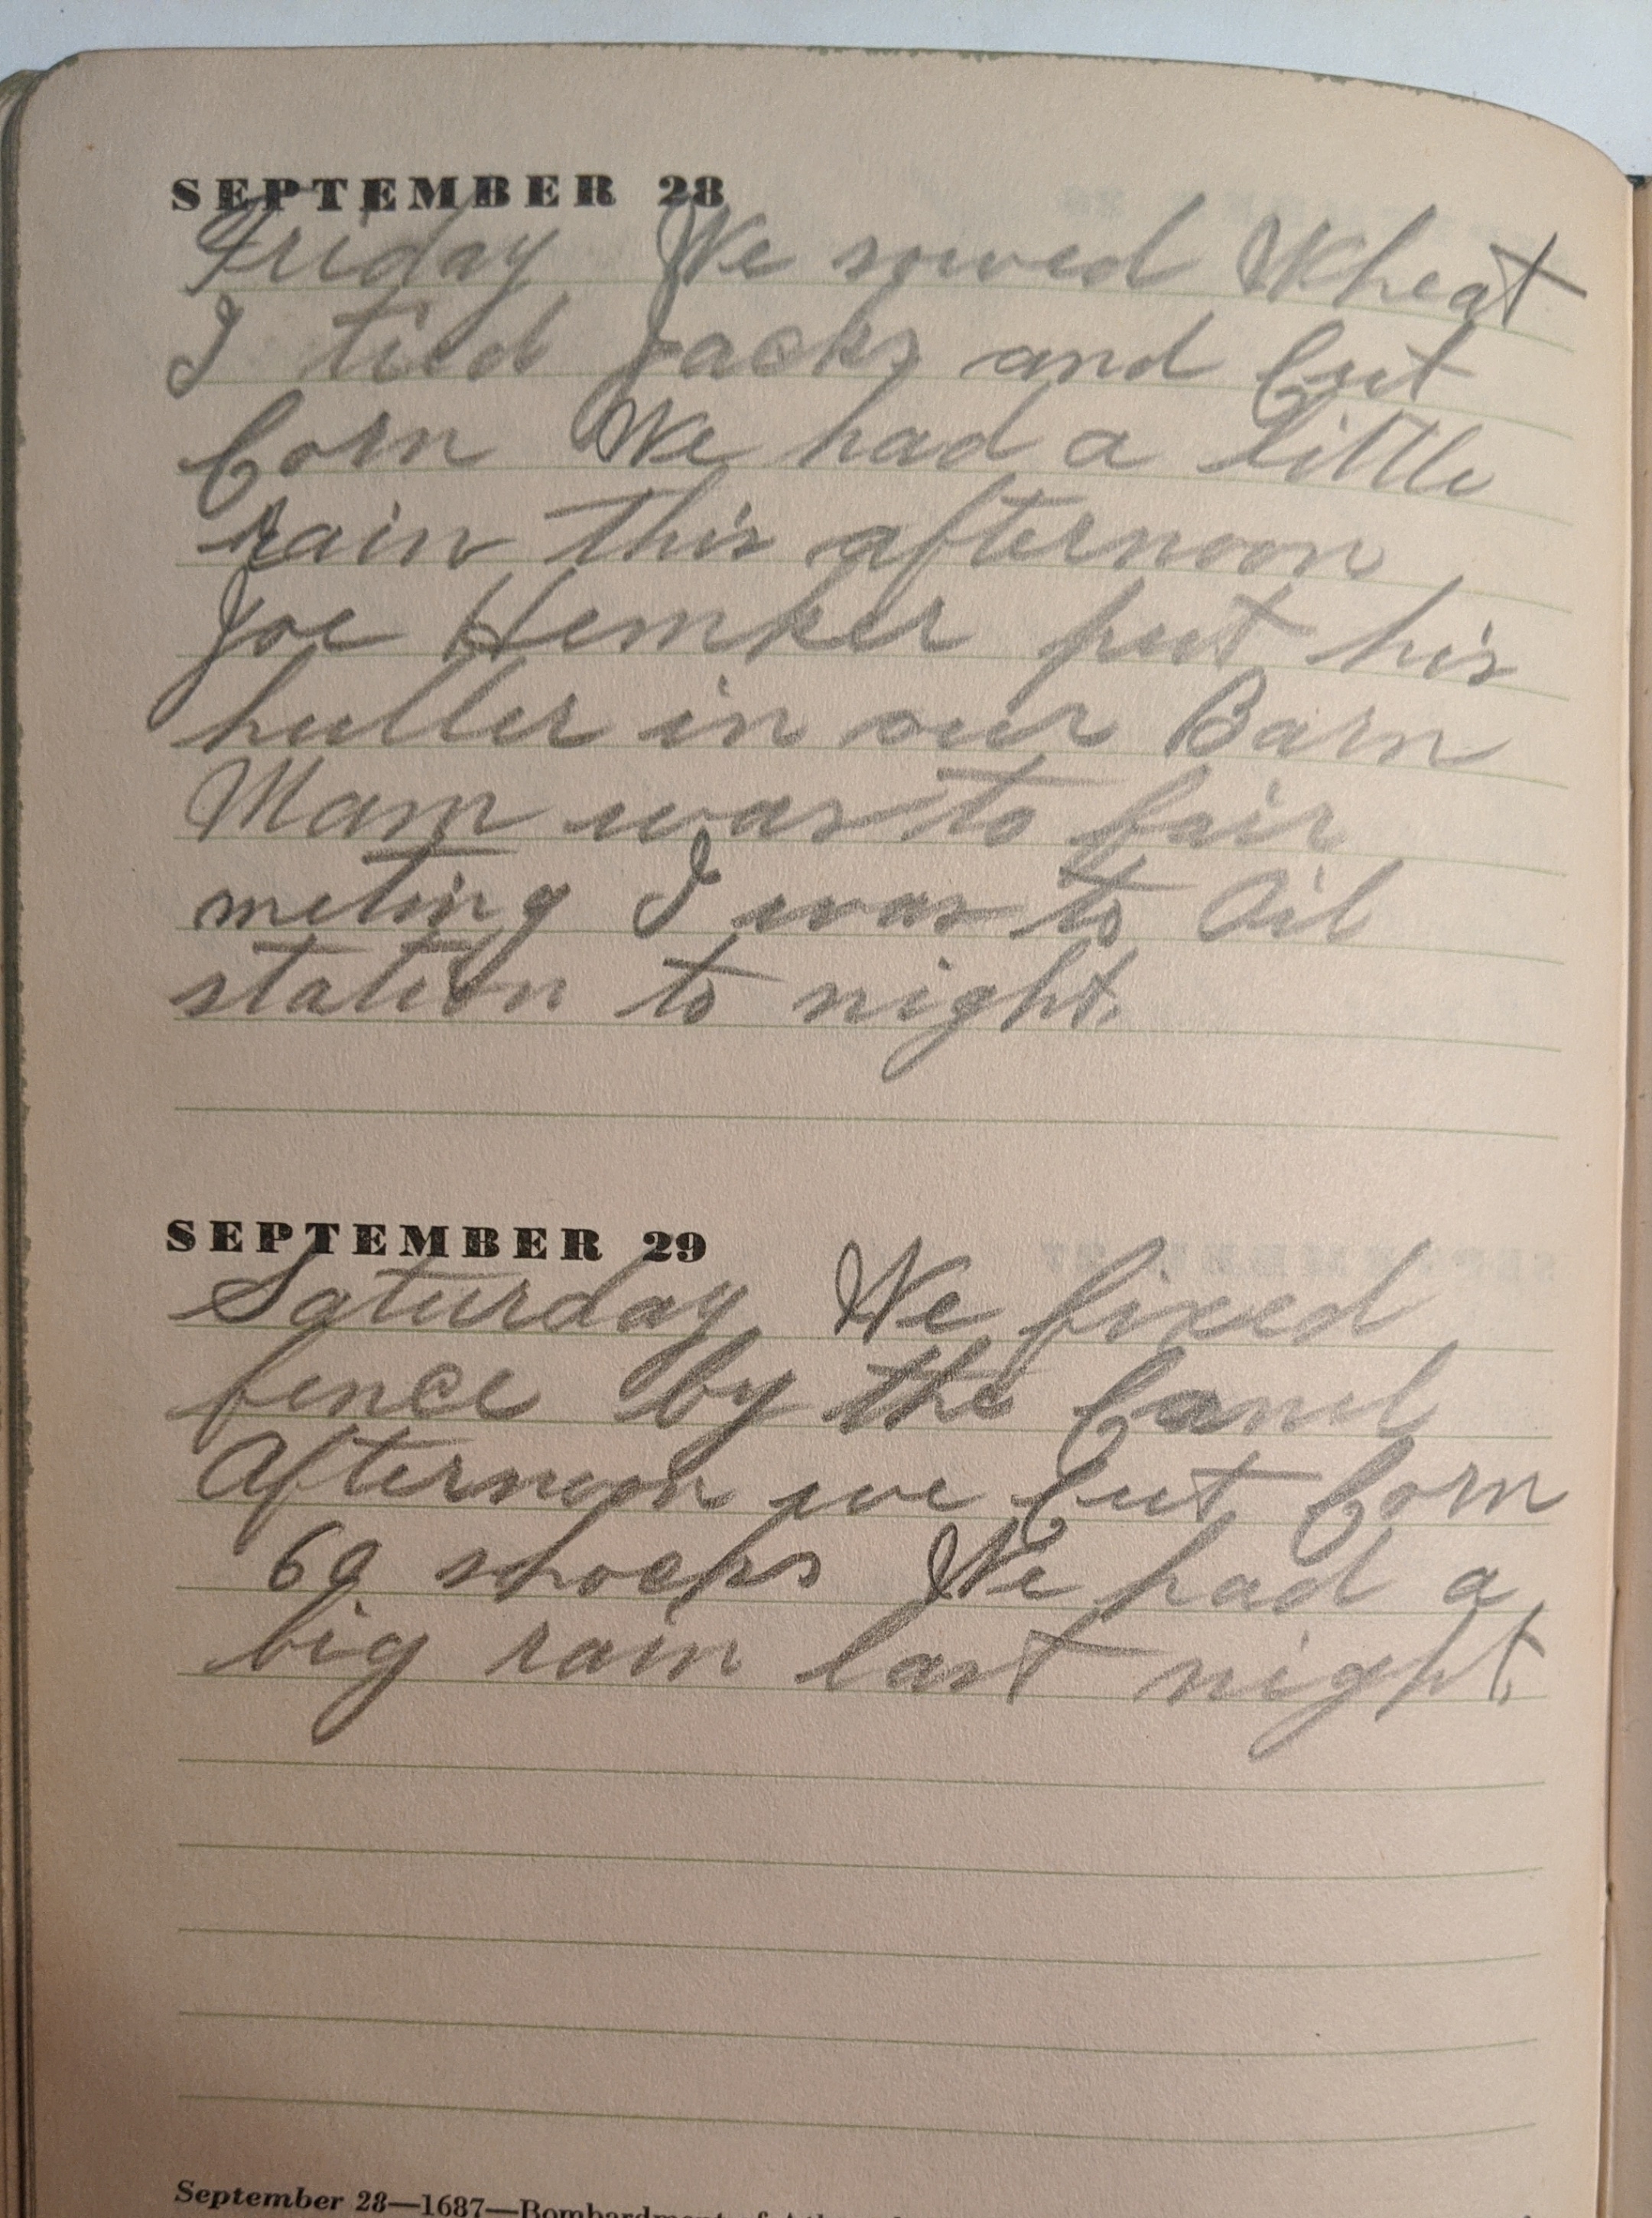 SEPTEMBER 28
Friday We sowed Wheat
I tied Jacks and Cut
Corn We had a little
rain this afternoon
Joe Hemker put his
huller in our Barn
Mam was to fair
meting I was to Oil
station to night.
SEPTEMBER 29
Saturday We fixed
fence by the Canel
Afternoon we Cut Corn
69 shocks We had a
big rain last night.
September 28—1687—Bombardment of